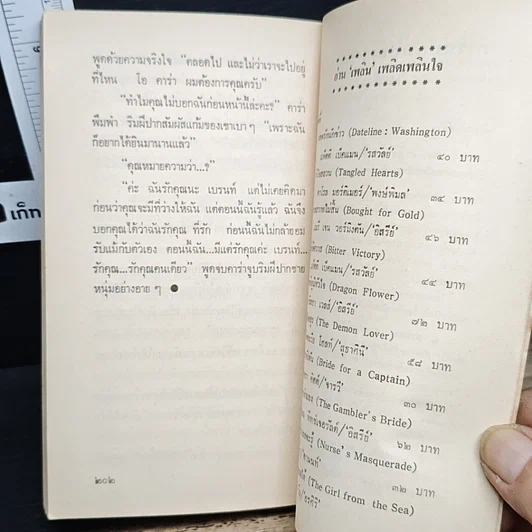 พูดด้วยความจริงใจ "ตลอดไป และไม่ว่าเราจะไปอยู่
ที่ไหน โอ คาร่า ผมต้องการคุณครับ"
"ทำไมคุณไม่บอกฉันก่อนหน้านี้ล่ะคะ?" คาร่า
พึมพำ ริมฝีปากสัมผัสแก้มของเขาเบาๆ "เพราะฉัน
ก็อยากได้ยินมานานแล้ว"
"คุณหมายความว่า...?"
"ค่ะ ฉันรักคุณนะ เบรนท์ แต่ไม่เคยคิดมา
ก่อนว่าคุณจะมีที่ว่างให้ฉัน แต่ตอนนี้ฉันรู้แล้ว ฉันจึง
บอกคุณได้ว่าฉันรักคุณ ที่รัก ก่อนนี้ฉันไม่กล้ายอม
รับแม้กับตัวเอง ตอนนี้ฉัน...มีแต่รักคุณค่ะ เบรนท์...
รักคุณ...รักคุณคนเดียว" พูดจบคาร่าจูบริมฝีปากชาย
หนุ่มอย่างอาย ๆ ●
๒๐๒
อ่าน 'เพลิน' เพลิดเพลินใจ
(Dateline : Washington)
เบ็คแมน/'รสวัลย์' ๔๐ บาท
(Tangled Hearts)
มอร์ติเมอร์/'พงษ์พิมล' ๓๔ บาท
(Bought for Gold)
เจน วอร์มิงตัน/'อิสรีย์' ๔๖ บาท
(Bitter Victory)
เบ็คแมน/'รสวัลย์' ๔๔ บาท
(Dragon Flower)
เวลส์/'อิสรีย์' ๗๒ บาท
(The Demon Lover)
โฮลท์/'สุธาคินี' ๕๘ บาท
(Bride for a Captain)
/'จารวี' ๓๐ บาท
(The Gambler's Bride)
/'อิสรีย์' ๖๒ บาท
(Nurse's Masquerade)
๓๒ บาท
(The Girl from the Sea)
บาท
เก็ท